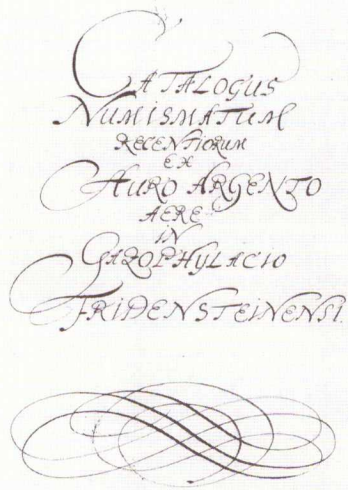 CATALOGUS
NUMISMATUM
RECENTIORUM
EX
AURO ARGENTO
AERE
IN
GAZOPHYLACIO
FRIDENSTEINENSI.